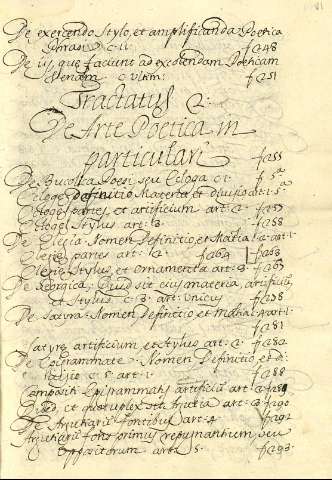 De exercendo stylo, et amplificanda Poetica
phrasi c. 11. f. 248
De ijs, quæ faciunt ad excolendam Poeticam
Venam c. Vltim: f. 251
Tractatus 2.
De Arte Poetica in
particulari
f. 255
De Bucolica Poesi, seu Ecloga c. 1.
Eclogæ definitio Materia et divisio art. 1.
Eclogæ partes et artificium art. 2. f. 257
Eclogæ Stylus art. 3. f. 258
De Elegia Nomen Definitio, et Mat̃ia art. 1.
Elegiæ partes art. 2. f. 264 f. 263
Elegiæ Stylus et Ornamenta art. 3. f. 265
De Georgica, Quid sit eius materia, artificiũ,
et Stylus c. 3. art. Unicus
De Satyra. Nomen Definitio et
f. 281
Satyræ artificium et Stylus art. 2. f. 282
De Epigrammate. Nomen Definitio et
c. 5. art. 1. f. 288
Epigrammatis artificiũ art. 2.
Quid, et quotuplex sit Argutia art. 3. f. 290
De Argutiarũ fontibus art. 4. f. 292
Argutiarũ fons primus repugnantium seu
Oppositorum art. 5. f. 293